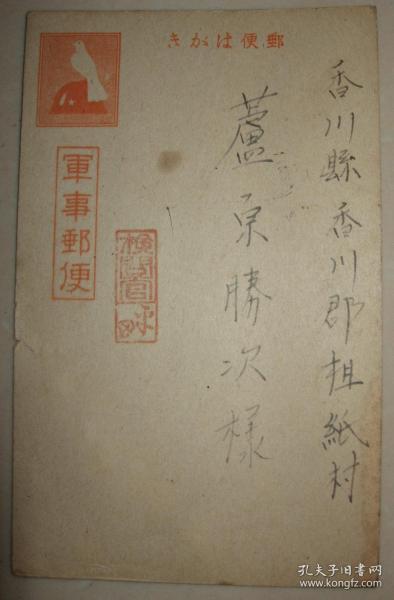 きかは便郵
香川縣香川郡担紙村
蘆原勝次様
軍事郵便
検閲官
孔夫子旧书网
www.kongfz.com